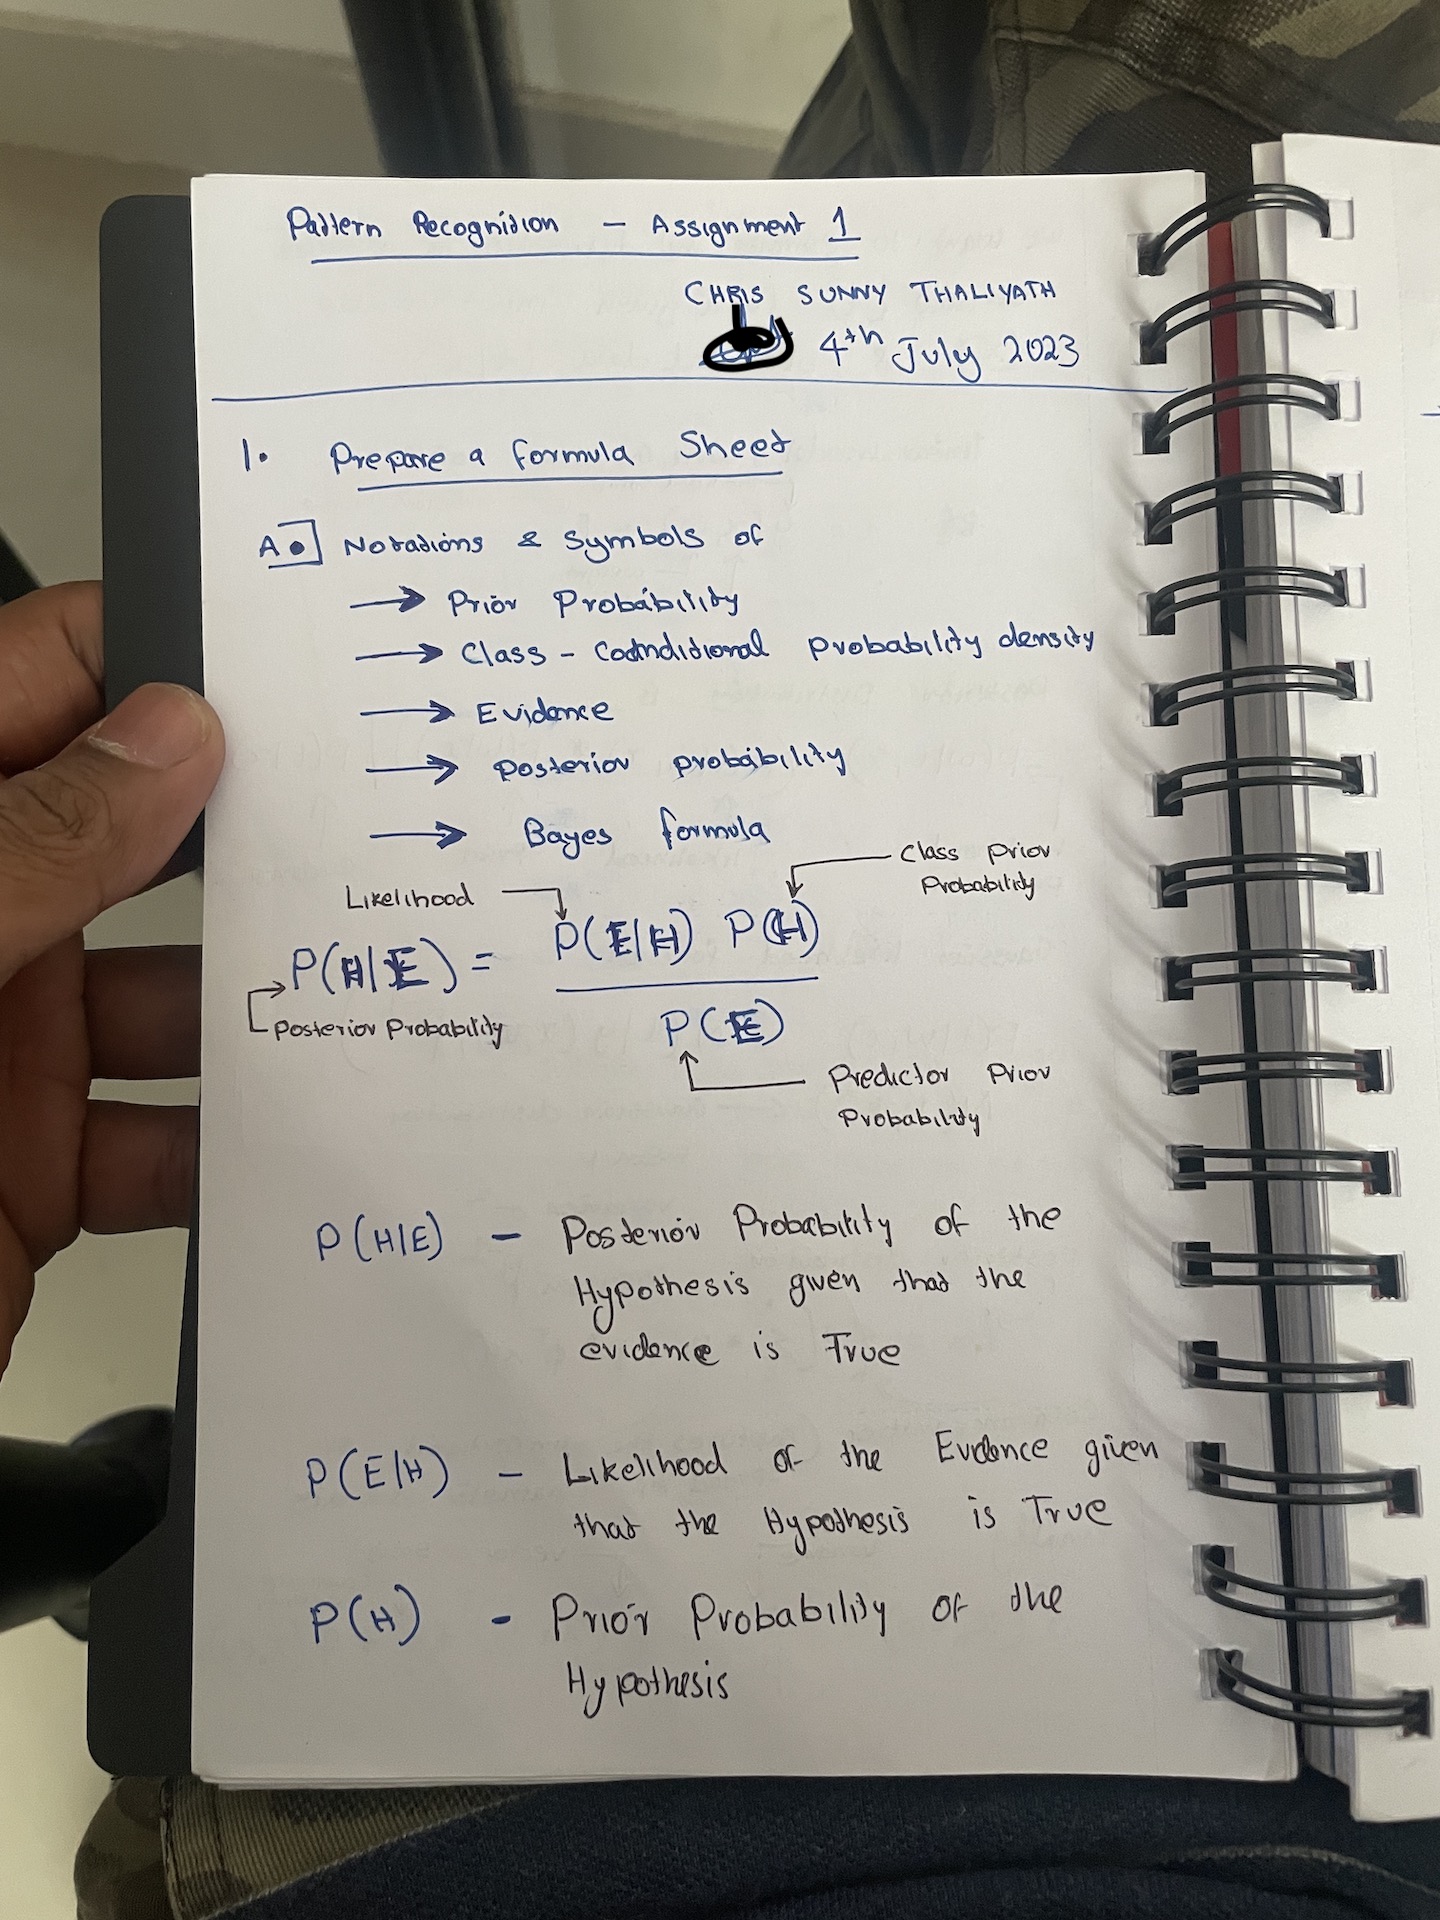 Pattern Recognition — Assignment 1
CHRIS SUNNY THALIYATH
4th July 2023
1. Prepare a formula Sheet
A. Notations & Symbols of
→ Prior Probability
→ Class - Conditional probability density
→ Evidence
→ Posterior probability
→ Bayes formula
Class Prior
Probability
Likelihood
P(H|E) = P(E|H) P(H)
P(E)
Posterior Probability
Predictor Prior
Probability
P(H|E) - Posterior Probability of the
Hypothesis given that the
evidence is True
P(E|H) - Likelihood of the Evidence given
that the Hypothesis is True
P(H) - Prior Probability of the
Hypothesis